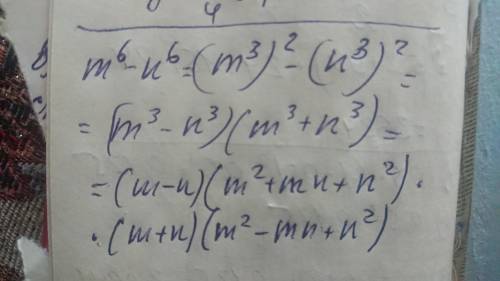 4
m⁶-n⁶=(m³)²-(n³)²=
=(m³-n³)(m³+n³)=
=(m-n)(m²+mn+n²)·
·(m+n)(m²-mn+n²)